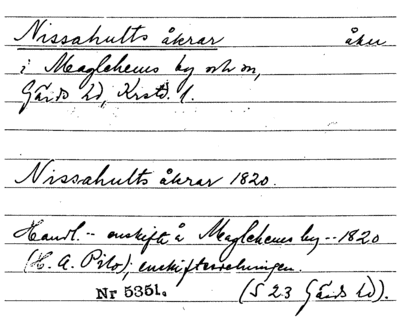 Nissahults åkrar åker
i Maglehems by och sn,
Gärds hd, Krstd. l.
Nissahults åkrar 1820.
Handl. -- enskifte å Maglehems by -- 1820
(H. A. Pilo); enskiftesdelningen.
Nr 5351. (S 23 Gärds hd).